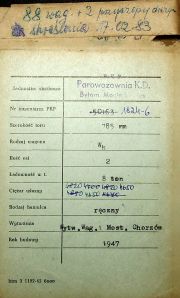 88 wag. + 2 przyczepy
skreślenie 7.02.83
P K P
Jednostka służbowa
Parowozownia K.D.
Bytom
Nr inwentarza PKP
50163 1824-6
Szerokość toru
785 mm
Rodzaj wagonu
Ilość osi
2
Ładowność w t.
8 ton
Ciężar własny
Rodzaj hamulca
ręczny
Wytwórnia
Wytw. Wag. i Most. Chorzów
Rok budowy
1947